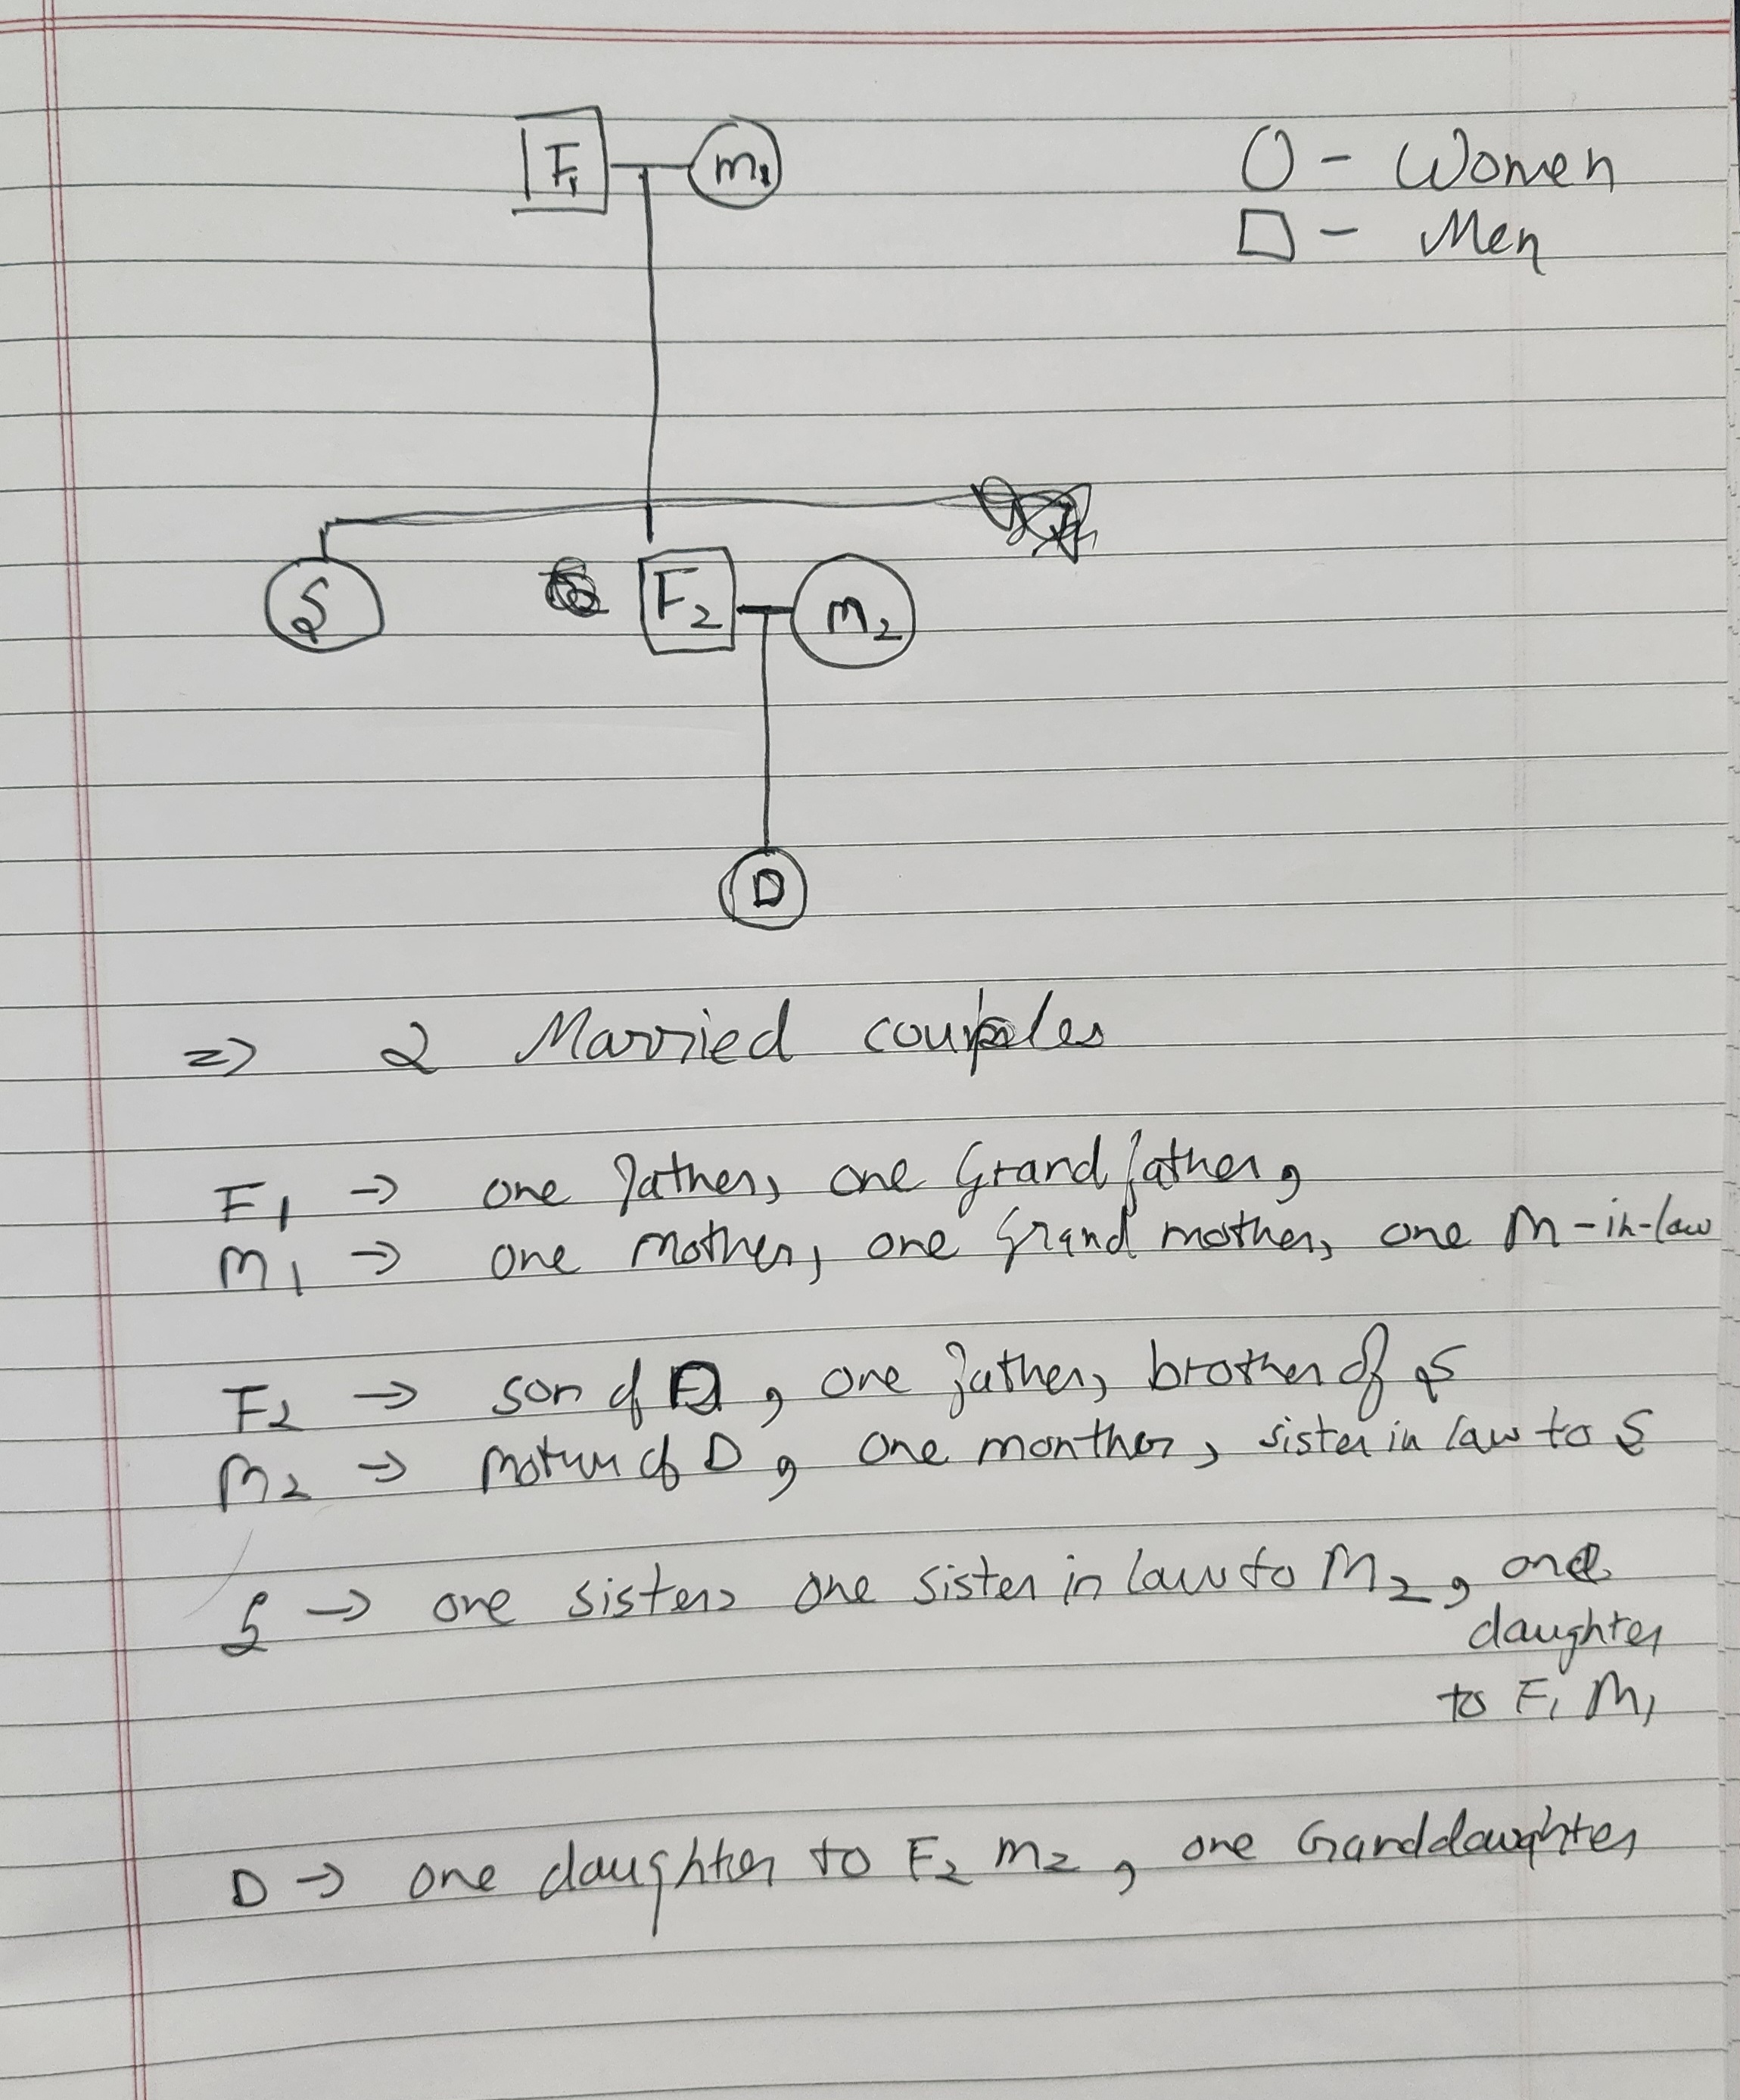 F1 m1 O - Women
□ - Men
S F2 m2
D
=> 2 Married couples
F1 → one father, one Grand father,
m1 → one mother, one Grand mother, one m-in-law
F2 → son of, one father, brother of S
m2 → mother of D, one monther, sister in law to S
S → one sister, one sister in law to M2, one
daughter
to F1 M1
D → one daughter to F2 m2, one Ganddaughter